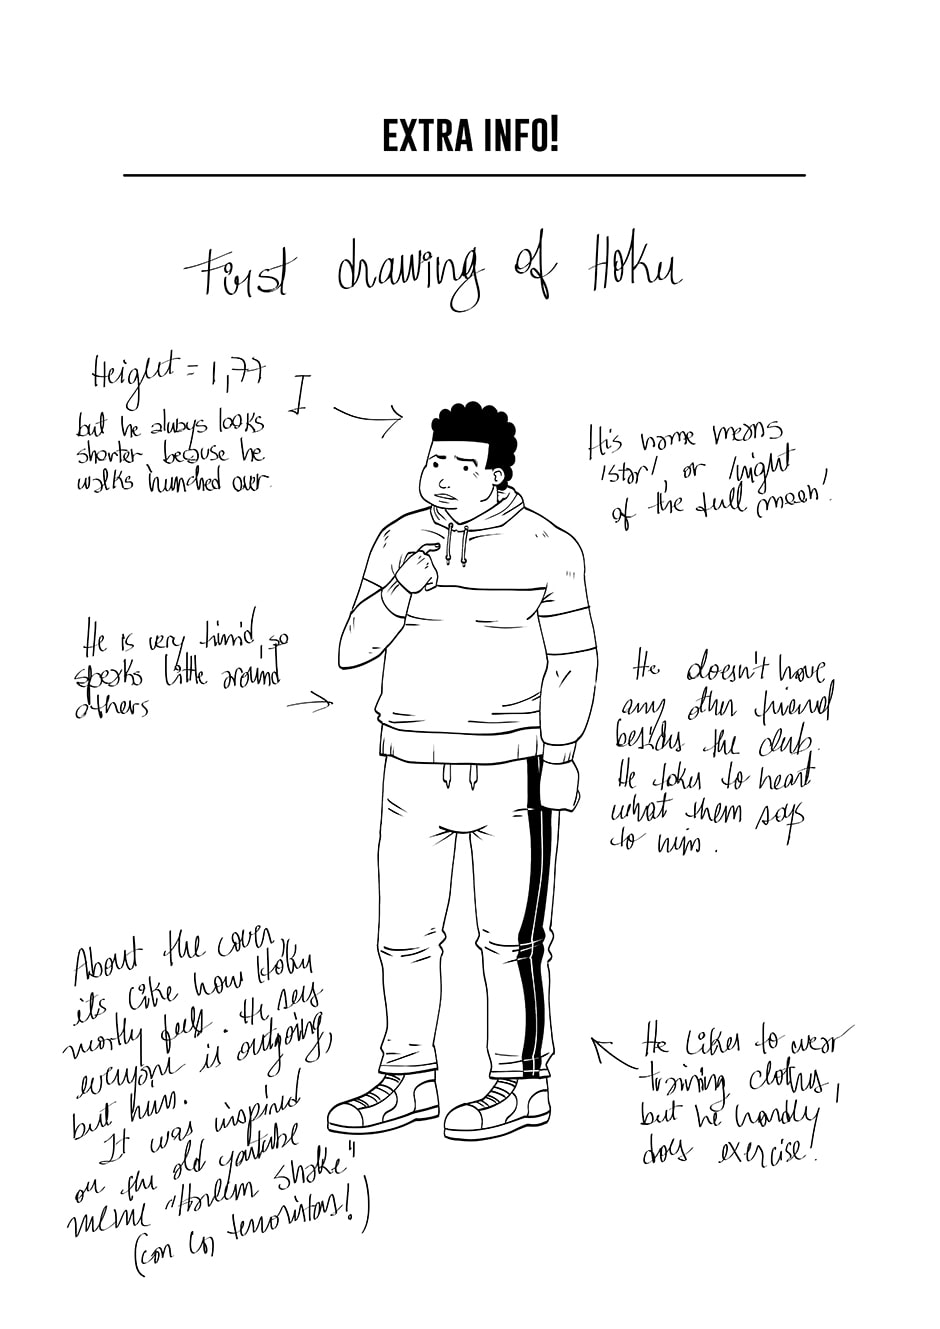 EXTRA INFO!
First drawing of Hoku
Height = 1,77
but he always looks
shorter, because he
walks hunched over.
His name means
'star', or 'night
of the full moon'.
He is very timid, so
speaks little around
others
He doesn't have
any other friend
besides the club.
He takes to heart
what them says
to him.
About the cover,
its like how Hoku
mostly feels. He says
everyone is outgoing,
but him.
It was inspired
on the old youtube
meme "Harlem Shake"
(con los terroristas!)
He likes to wear
training clothes,
but he hardly
does exercise!